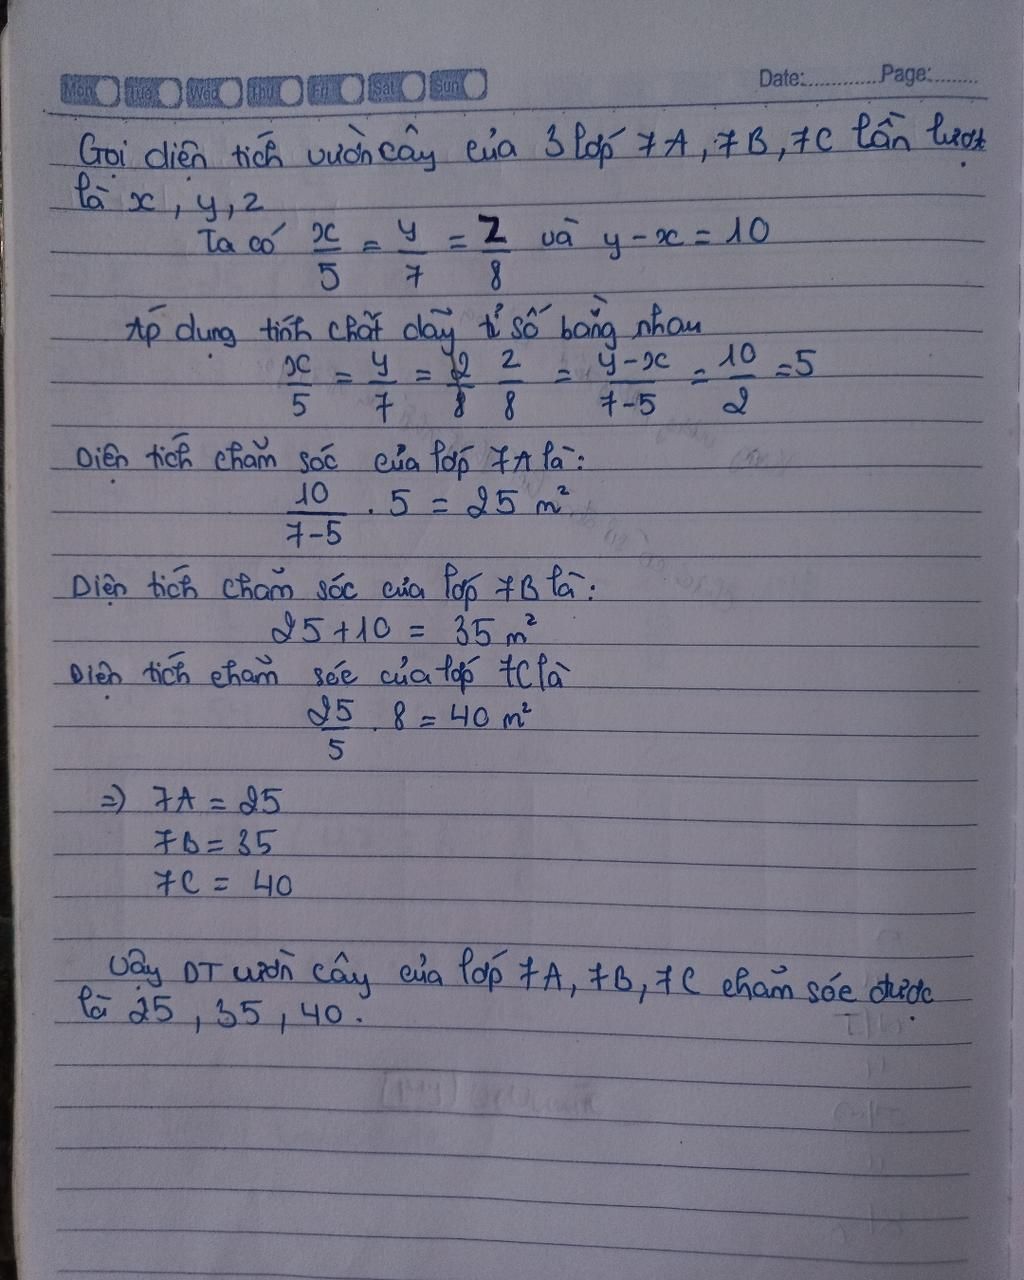 Mon Tue Wed Thu Fri Sat Sun Date:............ Page:........
Gọi diện tích vườn cây của 3 lớp 7A, 7B, 7C lần lượt
là x, y, z
Ta có x/5 = y/7 = z/8 và y-x = 10
Áp dụng tính chất dãy tỉ số bằng nhau
x/5 = y/7 = z/8 = y-x/7-5 = 10/2 = 5
Diện tích chăm sóc của lớp 7A là:
10/7-5 . 5 = 25 m²
Diện tích chăm sóc của lớp 7B là:
25+10 = 35 m²
Diện tích chăm sóc của lớp 7C là
25/5 . 8 = 40 m²
=) 7A = 25
7B = 35
7C = 40
Vậy DT vườn cây của lớp 7A, 7B, 7C chăm sóc được
là 25, 35, 40.